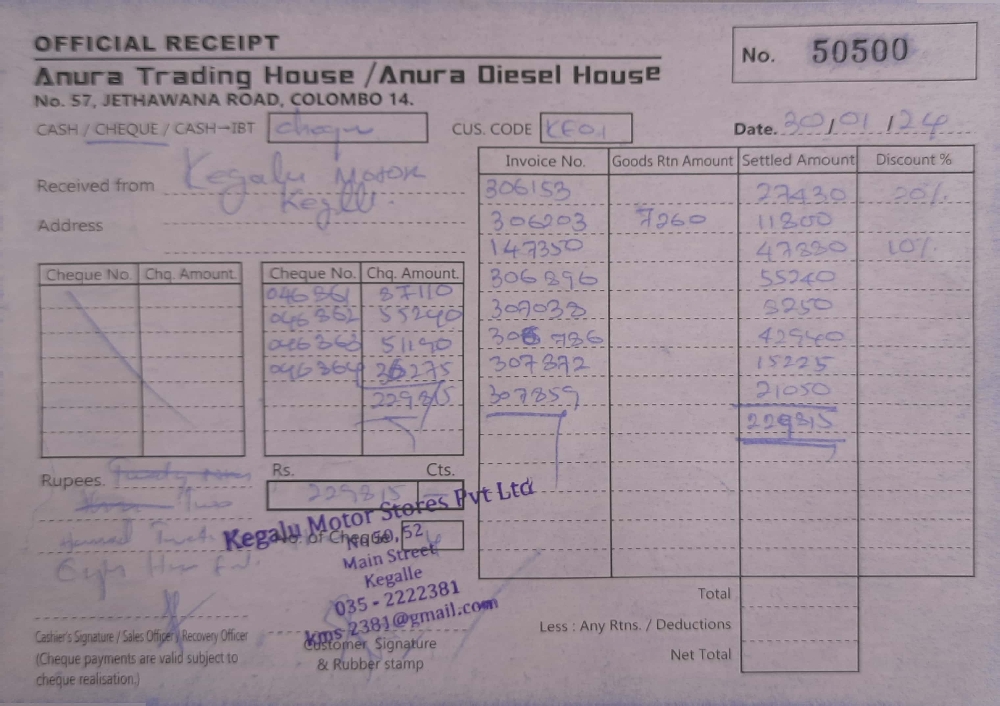 OFFICIAL RECEIPT
No. 50500
Anura Trading House / Anura Diesel House
No. 57, JETHAWANA ROAD, COLOMBO 14.
CASH / CHEQUE / CASH-IBT cheque CUS. CODE KE01 Date. 30/01/24
Received from Kegalu Motor
Kegalle.
Address
Invoice No. Goods Rtn Amount Settled Amount Discount %
306153 27430 20%
306203 7260 11800
147350 47880 10%
306896 55240
307038 8250
306 786 42940
307872 15225
307859 21050
229815
Cheque No. Chq. Amount. Cheque No. Chq. Amount.
046861 87110
046862 55240
046863 51190
046864 36275
229815
Rupees. Twenty nine
Two
Hundred Twenty
Eight Hun
Rs. Cts.
229815
No. of Cheque 4
Kegalu Motor Stores Pvt Ltd
No 50, 52
Main Street
Kegalle
035 - 2222381
kms 2381@gmail.com
Total
Less : Any Rtns. / Deductions
Net Total
Cashier's Signature / Sales Officer / Recovery Officer
(Cheque payments are valid subject to
cheque realisation.)
Customer Signature
& Rubber stamp